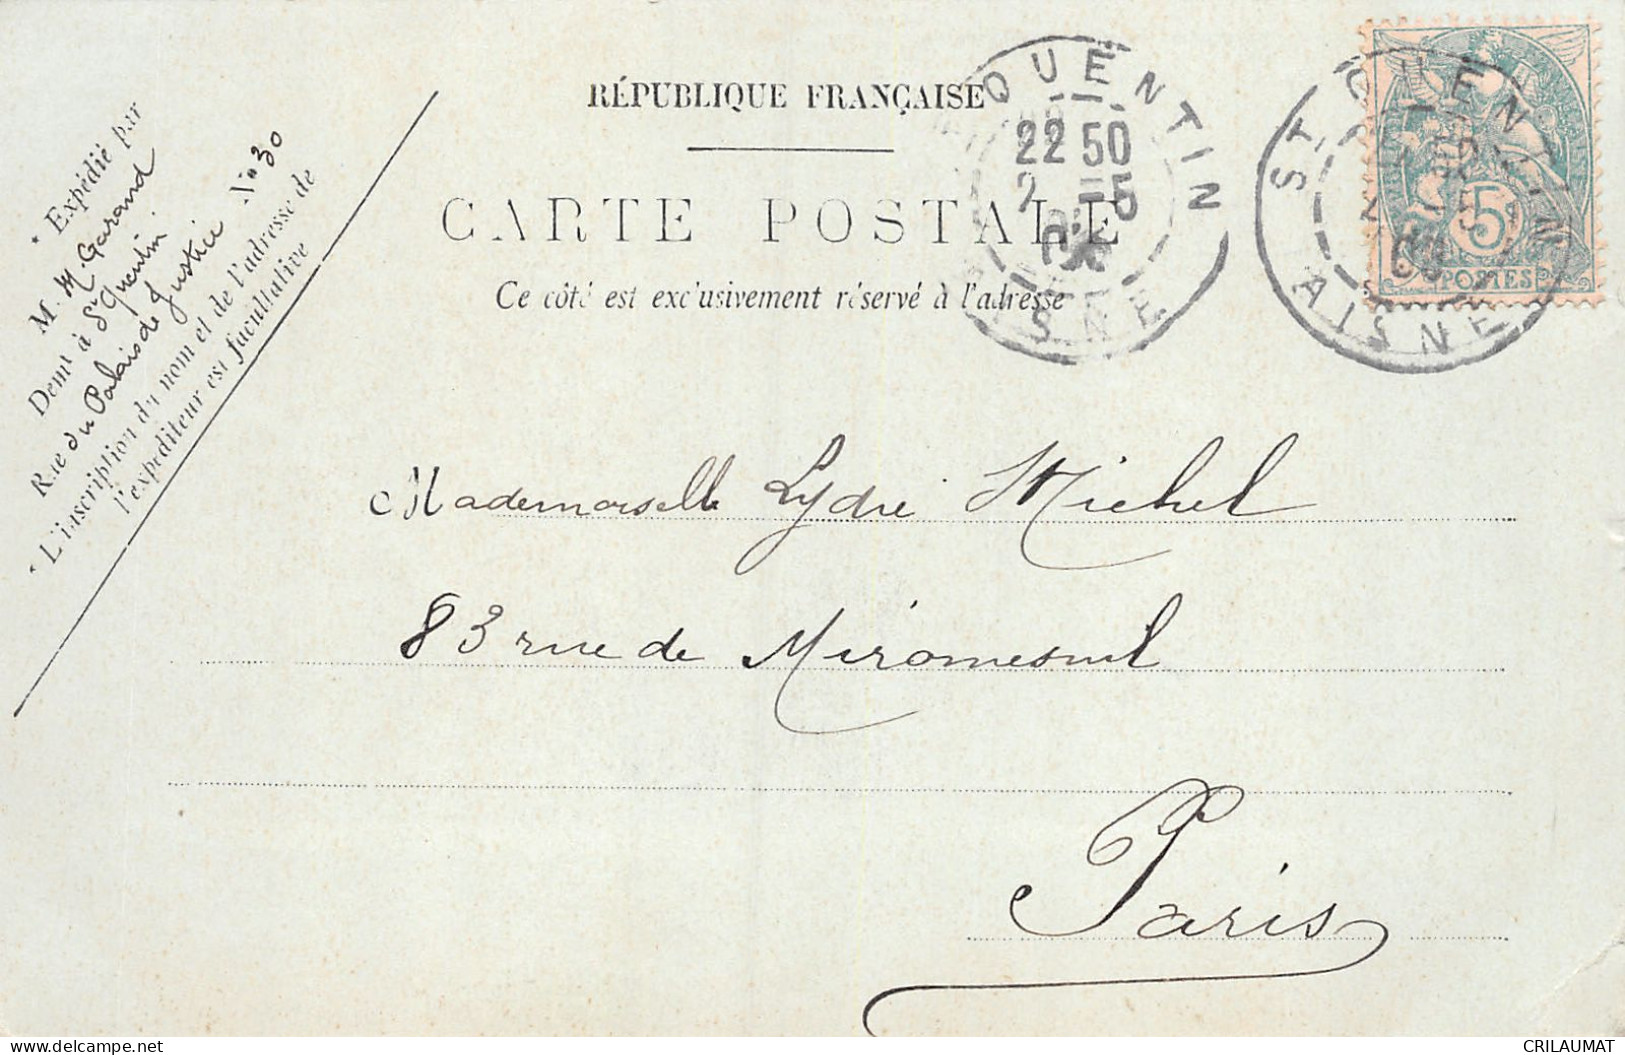 RÉPUBLIQUE FRANÇAISE
CARTE POSTALE
Ce côté est exclusivement réservé à l'adresse
* Expédié par
M. H. Garand
Demt à St Quentin
Rue du Palais de Justice No 30
* L'inscription du nom et de l'adresse de
l'expéditeur est facultative
QUENTIN
22 50
2 -5
ST QUENTIN
AISNE
5c
POSTES
Mademoiselle Lydie Michel
83 rue de Miromesnil
Paris
www.delcampe.net
CRILAUMAT